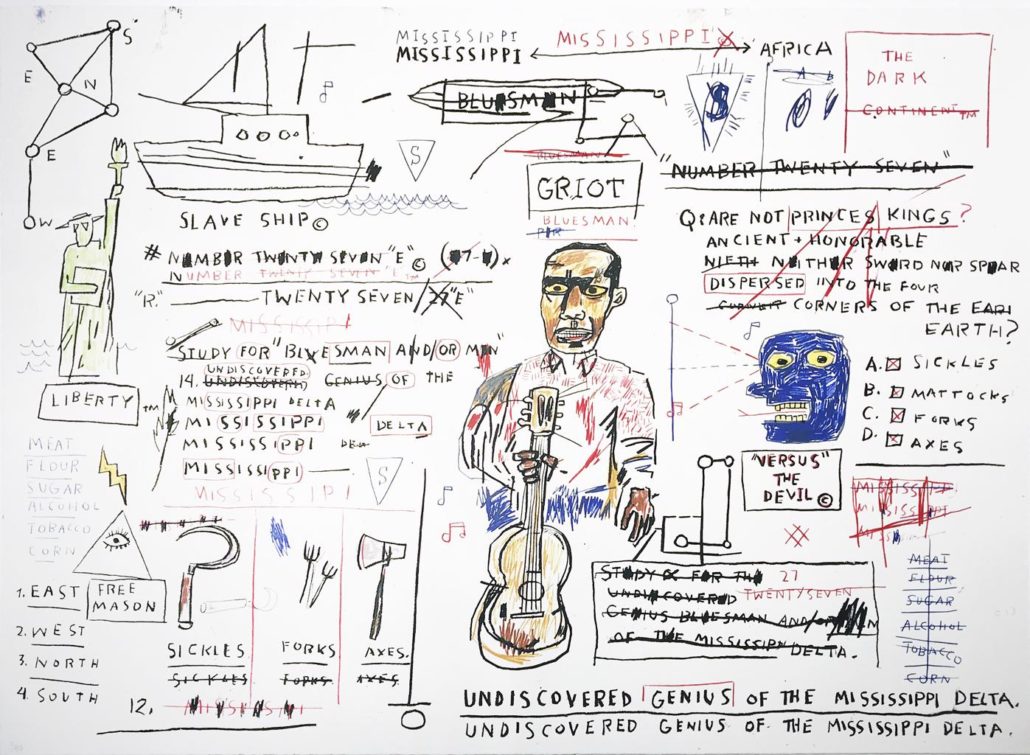 S
E
N
E
W
MISSISSIPPI
MISSISSIPPI
MISSISSIPPI
AFRICA
THE
DARK
CONTINENT™
BLUESMAN
S
S
A B
BLUESMAN
GRIOT
BLUESMAN
"NUMBER TWENTY SEVEN"
SLAVE SHIP©
# NUMBER TWENTY SEVEN "E"©
NUMBER TWENTY SEVEN "E™
"R." TWENTY SEVEN/27 "E"
MISSISSIPI
STUDY FOR "BLUESMAN AND/OR MAN"
UNDISCOVERED
14. UNDISCOVERED GENIUS OF THE
MISSISSIPPI DELTA
MISSISSIPPI DELTA
MISSISSIPPI
MISSISSIPPI
MISSISSIPI
S
Q: ARE NOT PRINCES KINGS?
ANCIENT + HONORABLE
NEITHER SWORD NOR SPEAR
DISPERSED INTO THE FOUR
CORNERS OF THE EAR
EARTH?
A. SICKLES
B. MATTOCKS
C. FORKS
D. AXES
LIBERTY™
"VERSUS"
THE
DEVIL©
MISSISSIPPI
MISSISSIPPI
MEAT
FLOUR
SUGAR
ALCOHOL
TOBACCO
CORN
FREE
MASON
1. EAST
2. WEST
3. NORTH
4 SOUTH
SICKLES FORKS AXES.
SICKLES FORKS AXES
12. MISSISSIPI
STUDY FOR THE 27
UNDISCOVERED TWENTYSEVEN
GENIUS BLUESMAN AND/OR MAN
OF THE MISSISSIPPI DELTA.
MEAT
FLOUR
SUGAR
ALCOHOL
TOBACCO
CORN
UNDISCOVERED GENIUS OF THE MISSISSIPPI DELTA.
UNDISCOVERED GENIUS OF THE MISSISSIPPI DELTA.